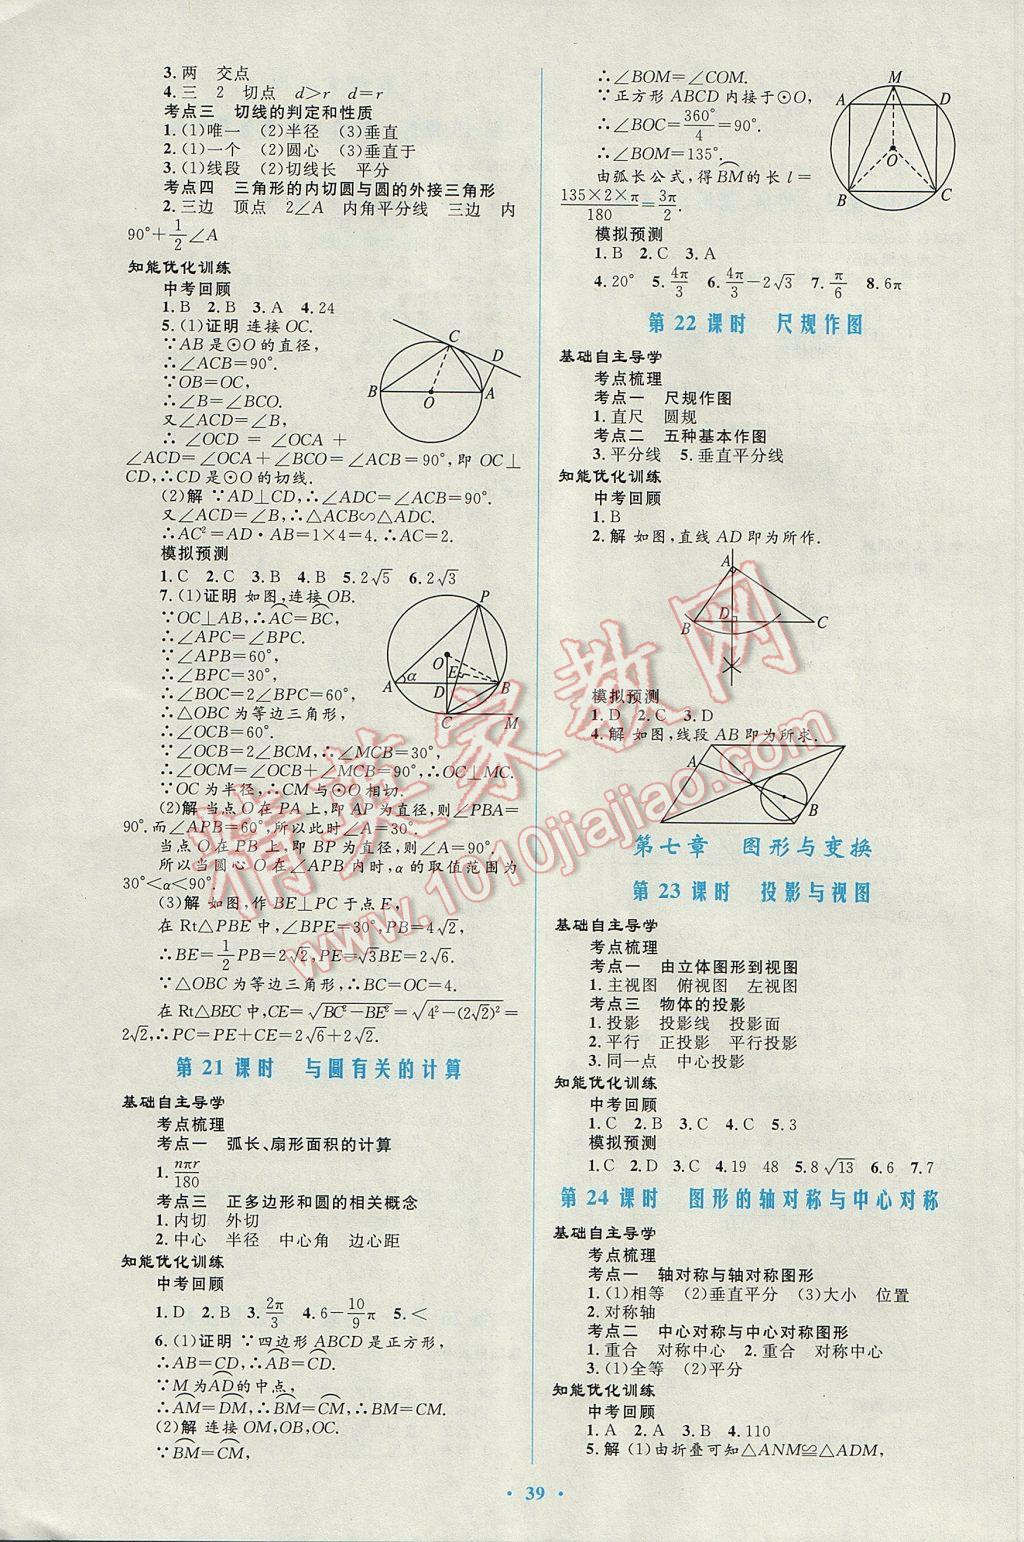 3.两　交点
4.三　2　切点　d>r　d=r
考点三　切线的判定和性质
1.(1)唯一　(2)半径　(3)垂直
2.(1)一个　(2)圆心　(3)垂直于
3.(1)线段　(2)切线长　平分
考点四　三角形的内切圆与圆的外接三角形
2.三边　顶点　2∠A　内角平分线　三边　内
90°+1/2∠A
知能优化训练
中考回顾
1.B　2.B　3.A　4.24
5.(1)证明 连接OC.
∵AB是⊙O的直径,
∴∠ACB=90°.
∵OB=OC,
∴∠B=∠BCO.
又∠ACD=∠B,
∴∠OCD=∠OCA+
∠ACD=∠OCA+∠BCO=∠ACB=90°,即OC⊥
CD,∴CD是⊙O的切线.
(2)解 ∵AD⊥CD,∴∠ADC=∠ACB=90°.
又∠ACD=∠B,∴△ACB∽△ADC.
∴AC²=AD·AB=1×4=4.∴AC=2.
C
D
B
O
A
模拟预测
1.C　2.C　3.B　4.B　5.2√5　6.2√3
7.(1)证明 如图,连接OB.
∵OC⊥AB,∴AC=BC,
∴∠APC=∠BPC.
∵∠APB=60°,
∴∠BPC=30°,
∴∠BOC=2∠BPC=60°.
∴△OBC为等边三角形,
∴∠OCB=60°.
∵∠OCB=2∠BCM,∴∠MCB=30°,
∴∠OCM=∠OCB+∠MCB=90°,∴OC⊥MC.
∵OC为半径,∴CM与⊙O相切.
P
O
E
A
α
D
B
C
M
(2)解 当点O在PA上,即AP为直径,则∠PBA=
90°.而∠APB=60°,所以此时∠A=30°.
当点O在PB上,即BP为直径,则∠A=90°.
所以当圆心O在∠APB内时,α的取值范围为
30°<α<90°.
(3)解 如图,作BE⊥PC于点E,
在Rt△PBE中,∠BPE=30°,PB=4√2,
∴BE=1/2PB=2√2,PE=√3BE=2√6.
∵△OBC为等边三角形,∴BC=OC=4.
在Rt△BEC中,CE=√(BC²−BE²)=√(4²−(2√2)²)=
2√2,∴PC=PE+CE=2√6+2√2.
第21课时　与圆有关的计算
基础自主导学
考点梳理
考点一　弧长、扇形面积的计算
1.nπr/180
考点三　正多边形和圆的相关概念
1.内切　外切
2.中心　半径　中心角　边心距
知能优化训练
中考回顾
1.D　2.B　3.2π/3　4.6−10/9π　5.<
6.(1)证明 ∵四边形ABCD是正方形,
∴AB=CD,∴AB=CD.
∵M为AD的中点,
∴AM=DM,∴BM=CM,∴BM=CM.
(2)解 连接OM,OB,OC.
∵BM=CM,
∴∠BOM=∠COM.
∵正方形ABCD内接于⊙O,
∴∠BOC=360°/4=90°.
∴∠BOM=135°.
由弧长公式,得BM的长l=
135×2×π/180=3π/2.
M
A
D
O
B
C
模拟预测
1.B　2.C　3.A
4.20°　5.4π/3　6.4π/3−2√3　7.π/6　8.6π
第22课时　尺规作图
基础自主导学
考点梳理
考点一　尺规作图
1.直尺　圆规
考点二　五种基本作图
3.平分线　5.垂直平分线
知能优化训练
中考回顾
1.B
2.解 如图,直线AD即为所作.
A
B
D
C
模拟预测
1.D　2.C　3.D
4.解 如图,线段AB即为所求.
A
B
第七章　图形与变换
第23课时　投影与视图
基础自主导学
考点梳理
考点一　由立体图形到视图
1.主视图　俯视图　左视图
考点三　物体的投影
1.投影　投影线　投影面
2.平行　正投影　平行投影
3.同一点　中心投影
知能优化训练
中考回顾
1.C　2.B　3.C　4.C　5.3
模拟预测
1.C　2.D　3.C　4.19　48　5.8√13　6.6　7.7
第24课时　图形的轴对称与中心对称
基础自主导学
考点梳理
考点一　轴对称与轴对称图形
1.(1)相等　(2)垂直平分　(3)大小　位置
2.对称轴
考点二　中心对称与中心对称图形
1.重合　对称中心　2.重合　对称中心
3.(1)全等　(2)平分
知能优化训练
中考回顾
1.A　2.A　3.B　4.110
5.解 (1)由折叠可知△ANM≌△ADM,
· 39 ·
精英家教网
www.1010jiajiao.com